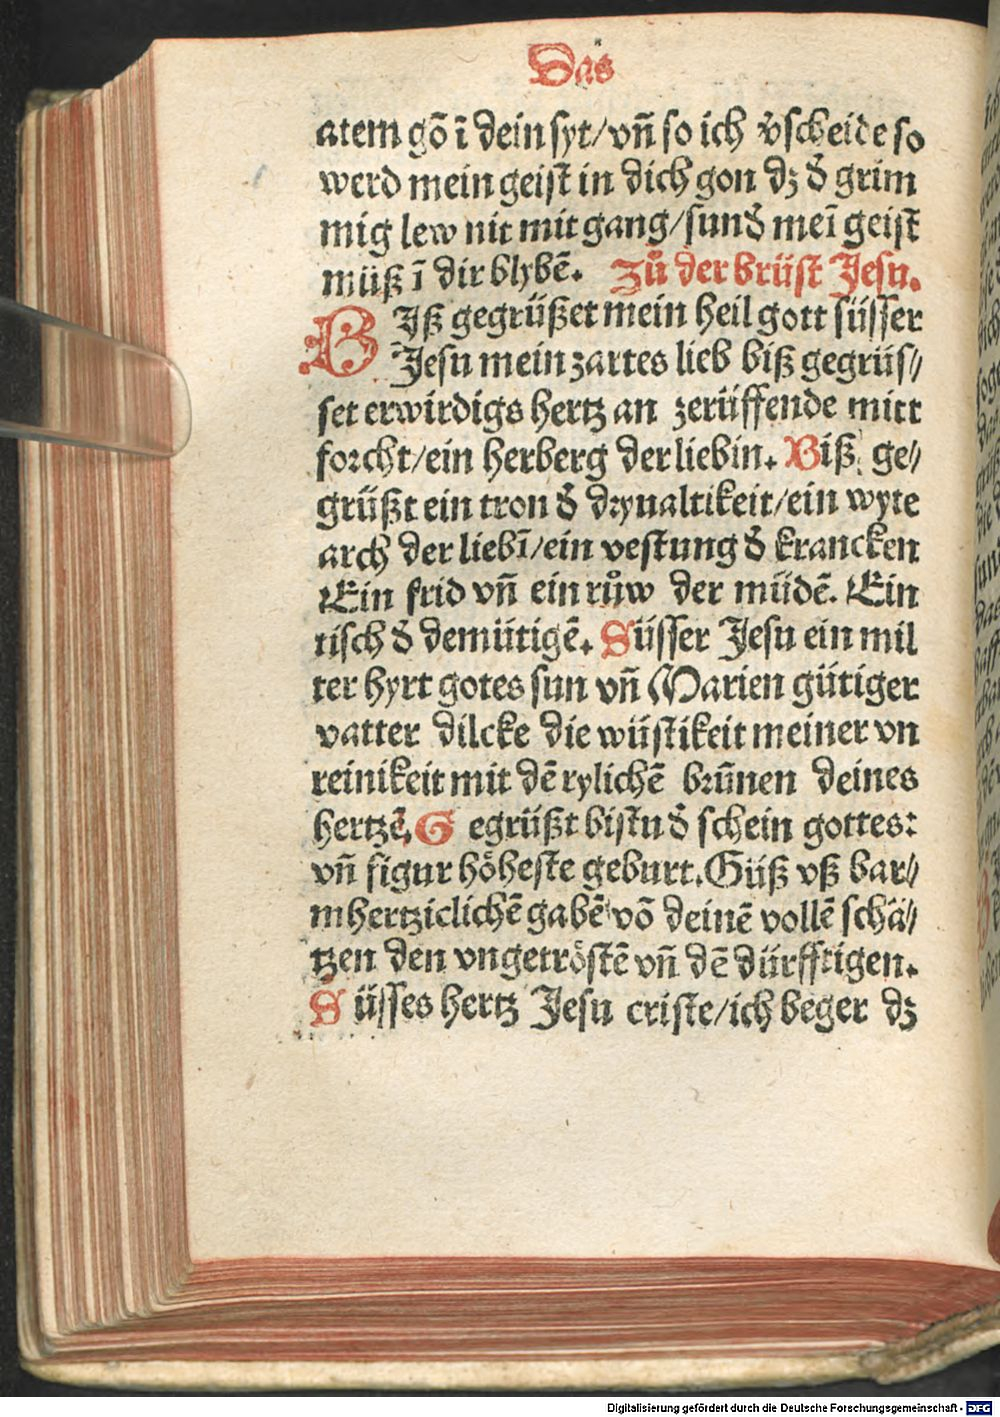 Das
atem gō ī dein syt/vñ so ich v̄scheide so
werd mein geist in dich gon dz d̄ grim
mig lew nit mit gang/sund̄ meī geist
müß ī dir blybē. Zů der brüst Jesu.
BIß gegrüßet mein heil gott süsser
Jesu mein zartes lieb biß gegrüs//
set erwirdigs hertz an zerüffende mitt
forcht/ein herberg der liebin. Biß ge//
grüßt ein tron d̄ dryualtikeit/ein wyte
arch der liebī/ein vestung d̄ krancken
Ein frid vñ ein růw der müdē. Ein
tisch d̄ demütigē. Süsser Jesu ein mil
ter hyrt gotes sun vñ Marien gütiger
vatter dilcke die wüstikeit meiner vn
reinikeit mit dē rylichē brūnen deines
hertzē. Gegrüßt bistu d̄ schein gottes:
vñ figur höheste geburt. Güß vß bar//
mhertziclichē gabē vō deinē vollē schä//
tzen den vngetröstē vñ dē dürfftigen.
Süsses hertz Jesu criste/ich beger dz
Digitalisierung gefördert durch die Deutsche Forschungsgemeinschaft - DFG